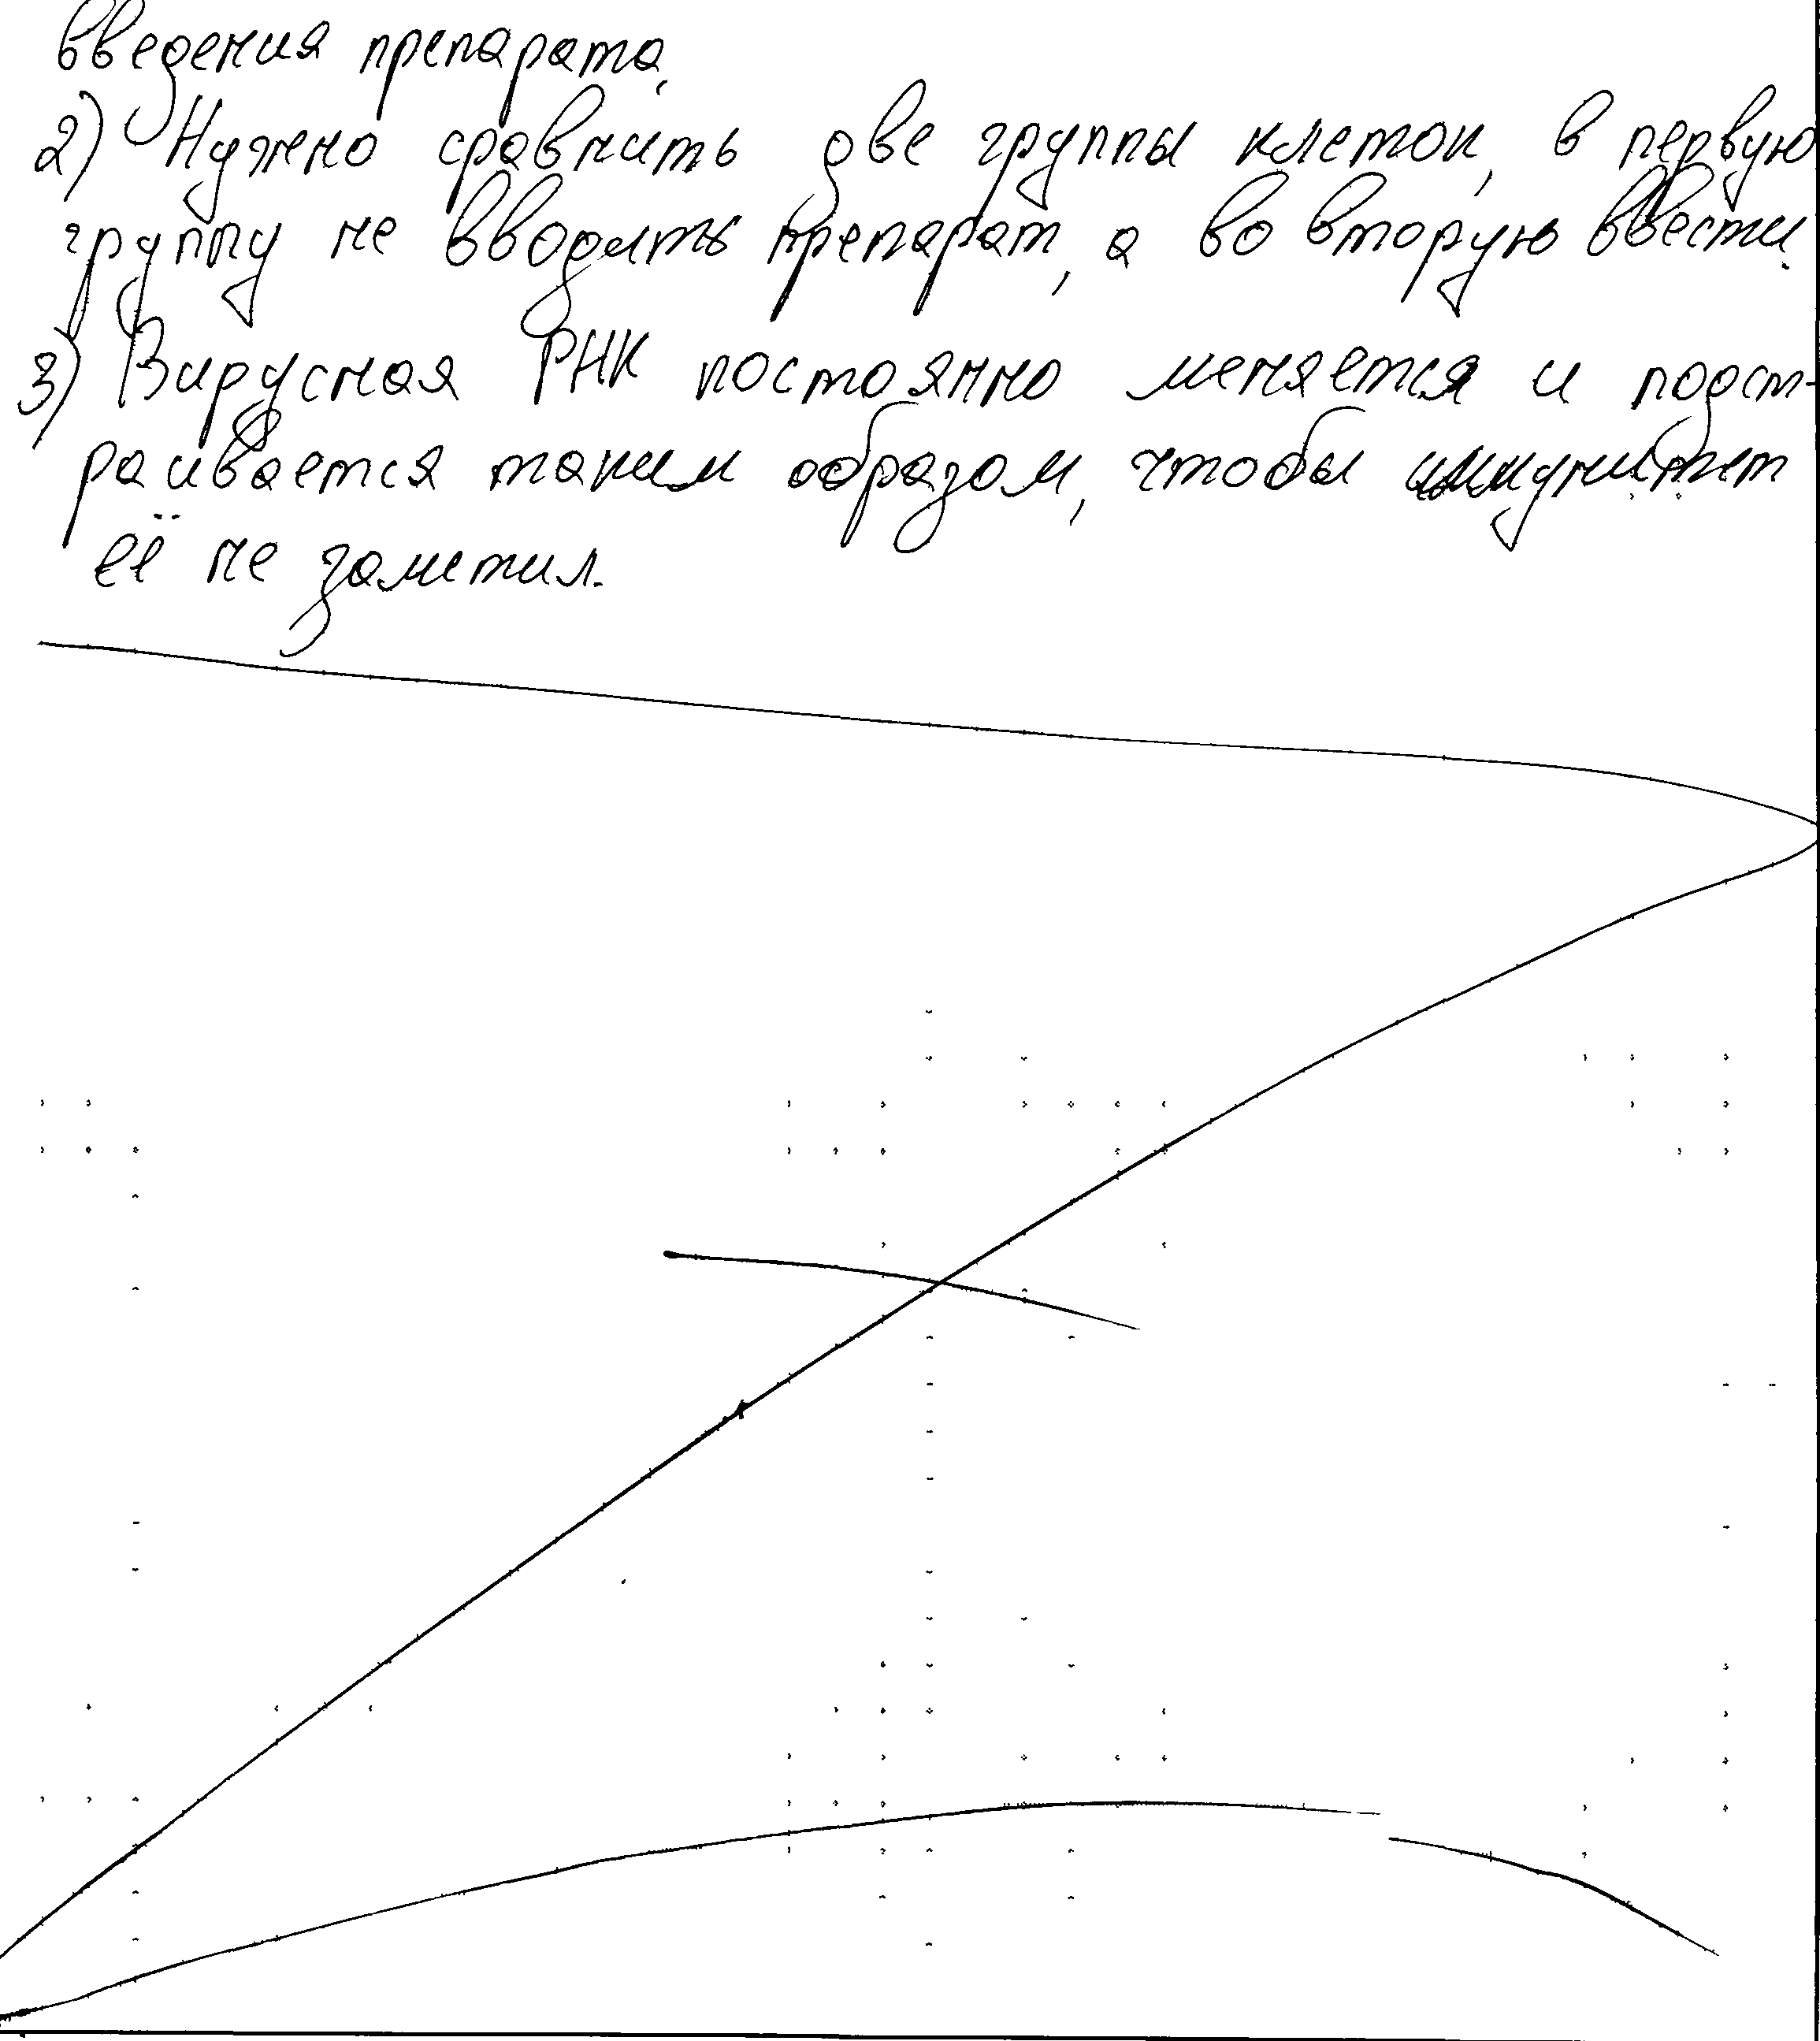 введения препарата.
2) Нужно сравнить две группы клеток, в первую
группу не вводить препарат, а во вторую ввести.
3) Вирусная РНК постоянно меняется и подст-
раивается таким образом, чтобы иммунитет
её не заметил.